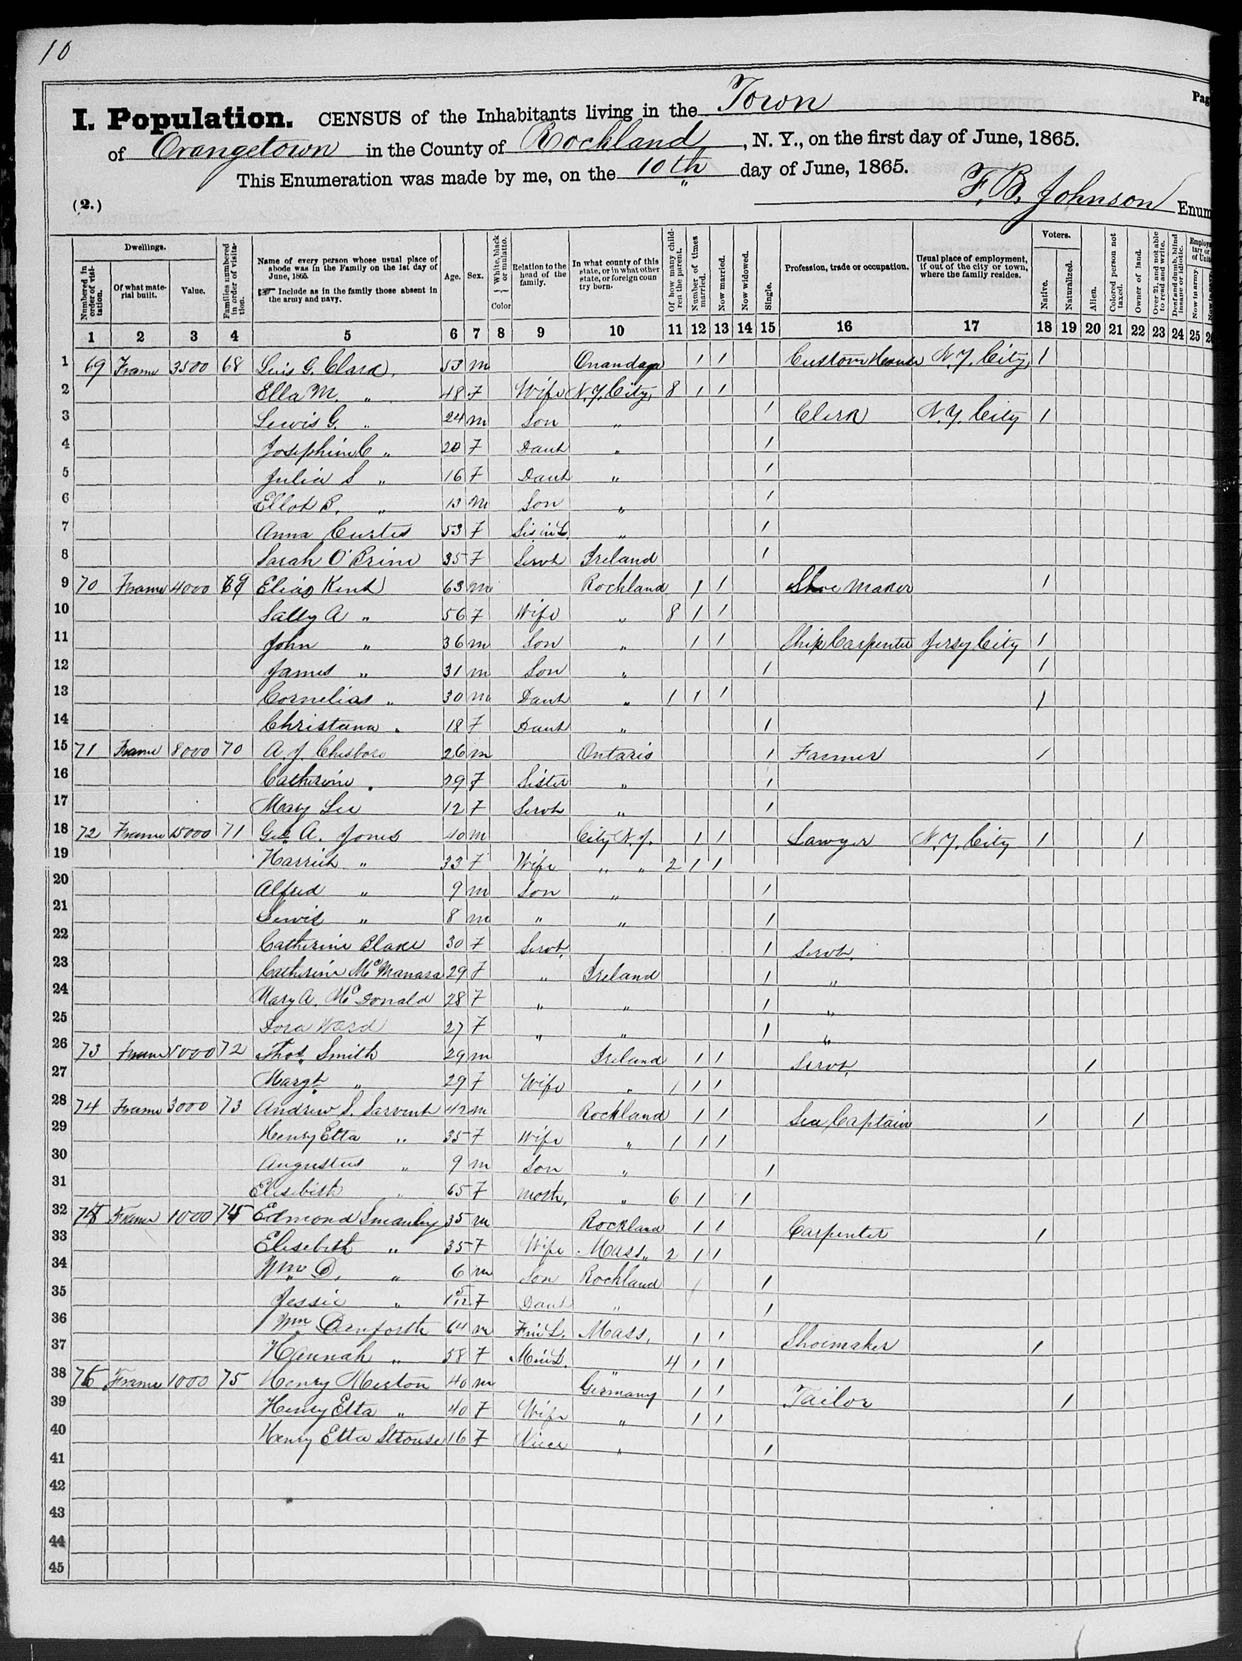 10
I. Population. CENSUS of the Inhabitants living in the Town Pag
of Orangetown in the County of Rockland, N. Y., on the first day of June, 1865.
This Enumeration was made by me, on the 10th day of June, 1865.
F. B. Johnson Enum
(2.)
Dwellings. Voters.
Numbered in order of visitation. Of what material built. Value. Families numbered in order of visitation. Name of every person whose usual place of abode was in the Family on the 1st day of June, 1865. Include as in the family those absent in the army and navy. Age. Sex. White, black or mulatto. Color Relation to the head of the family. In what county of this state, or in what other state, or foreign country born. Of how many children the parent. Number of times married. Now married. Now widowed. Single. Profession, trade or occupation. Usual place of employment, if out of the city or town, where the family resides. Native. Naturalized. Alien. Colored person not taxed. Owner of land. Over 21, and not able to read and write. Deaf and dumb, blind insane or idiotic. Now in army.
1 2 3 4 5 6 7 8 9 10 11 12 13 14 15 16 17 18 19 20 21 22 23 24 25 2
1 69 Frame 3500 68 G. 53 m Onandaga 1 1 Custom House N. Y. City 1
2 Ella M. " 48 F Wife N.Y. City 8 1 1
3 Lewis G. " 24 m Son " 1 Clerk N. Y. City 1
4 Josephine C " 20 F Daut " 1
5 Julia S " 16 F Daut " 1
6 " 13 m Son " 1
7 Anna Curtis 53 F Sis in L " 1
8 Sarah O'Brine 35 F Servt Ireland 1
9 70 Frame 4000 69 Elias Kent 63 m Rockland 1 1 Shoe Maker 1
10 Sally A " 56 F Wife " 8 1 1
11 John " 36 m Son " 1 1 Ship Carpenter Jersy City 1
12 James " 31 m Son " 1 1
13 Cornelias " 30 m Daut " 1 1 1 1
14 Christana " 18 F Daut " 1
15 71 Frame 8000 70 A. J. 26 m Ontario 1 Farmer 1
16 Catherine " 29 F Sister " 1
17 Mary Lee 12 F Servt " 1
18 72 Frame 15000 71 Geo. A. Jones 40 m City N.Y. 1 1 Lawyer N. Y. City 1 1
19 Harriet " 33 F Wife " " 2 1 1
20 Alfred " 9 m Son " 1
21 Lewis " 8 m " " 1
22 Catherine Blake 30 F Servt. 1 Servt.
23 Catherine McManara 29 F " Ireland 1 "
24 Mary A. McDonald 28 F " " 1 "
25 Dora Ward 27 F " " 1 "
26 73 Frame 1000 72 Thos. Smith 29 m Ireland 1 1 Servt. 1
27 Margt. " 29 F Wife " 1 1 1
28 74 Frame 3000 73 Andrew S. Sarvent 42 m Rockland 1 1 Sea Captain 1 1
29 Henry Etta " 35 F Wife " 1 1 1
30 Augustus " 9 m Son " 1
31 Elisebeth " 65 F Moth. " 6 1 1
32 75 Frame 1000 74 Edmond 35 m Rockland 1 1 Carpenter 1
33 Elisebeth " 35 F Wife Mass. 2 1 1
34 Wm D. " 6 m Son Rockland 1
35 Jessie " F Daut " 1
36 Wm Danforth 64 m F in L. Mass. 1 1 Shoemaker 1
37 Hannah " 58 F M in L. " 4 1 1
38 76 Frame 1000 75 Henry 40 m Germany 1 1 Tailor 1
39 Henry Etta " 40 F Wife " 1 1
40 Henry Etta Strouse 16 F Niece " 1
41
42
43
44
45